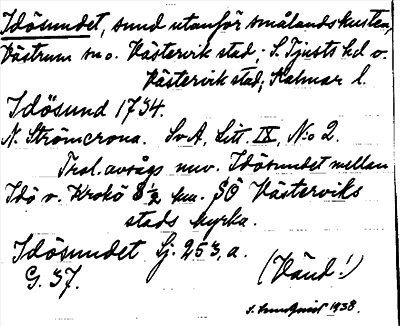 Idösundet, sund utanför smålandskusten,
Västrum sn o. Västervik stad; S. Tjusts hd o.
Västervik stad; Kalmar l.
Idösund 1734.
N. Strömcrona. SvA, Litt. IX, N:o 2.
Trol. avsågs nuv. Idösundet mellan
Idö o. Krokö 8 1/2 km. SÖ Västerviks
stads kyrka.
Idösundet Sj. 253, a.
G. 37.
(Vänd!)
S. Lundqvist 1938.